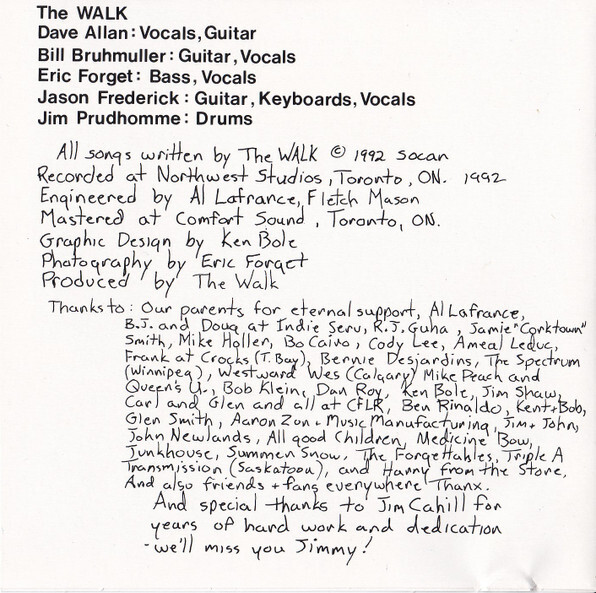 The WALK
Dave Allan: Vocals, Guitar
Bill Bruhmuller: Guitar, Vocals
Eric Forget: Bass, Vocals
Jason Frederick: Guitar, Keyboards, Vocals
Jim Prudhomme: Drums
All songs written by The WALK © 1992 socan
Recorded at Northwest Studios, Toronto, ON. 1992
Engineered by Al Lafrance, Fletch Mason
Mastered at Comfort Sound, Toronto, ON.
Graphic Design by Ken Bole
Photography by Eric Forget
Produced by The Walk
Thanks to: Our parents for eternal support, Al Lafrance,
B.J. and Doug at Indie Serv, R.J. Guha, Jamie "Corktown"
Smith, Mike Hollen, Bo Cairo, Cody Lee, Ameal Leduc,
Frank at Crocks (T. Bay), Bernie Desjardins, The Spectrum
(Winnipeg), Westward Wes (Calgary) Mike Peach and
Queen's U., Bob Klein, Dan Roy, Ken Bole, Jim Shaw,
Carl and Glen and all at CFLR, Ben Rinaldo, Kent + Bob,
Glen Smith, Aaron Zon + Music Manufacturing, Jim + John,
John Newlands, All good Children, Medicine Bow,
Junkhouse, Summer Snow, The Forgettables, Triple A
Transmission (Saskatoon), and Harry from the Store,
And also friends + fans everywhere Thanx.
And special thanks to Jim Cahill for
years of hard work and dedication
- we'll miss you Jimmy!